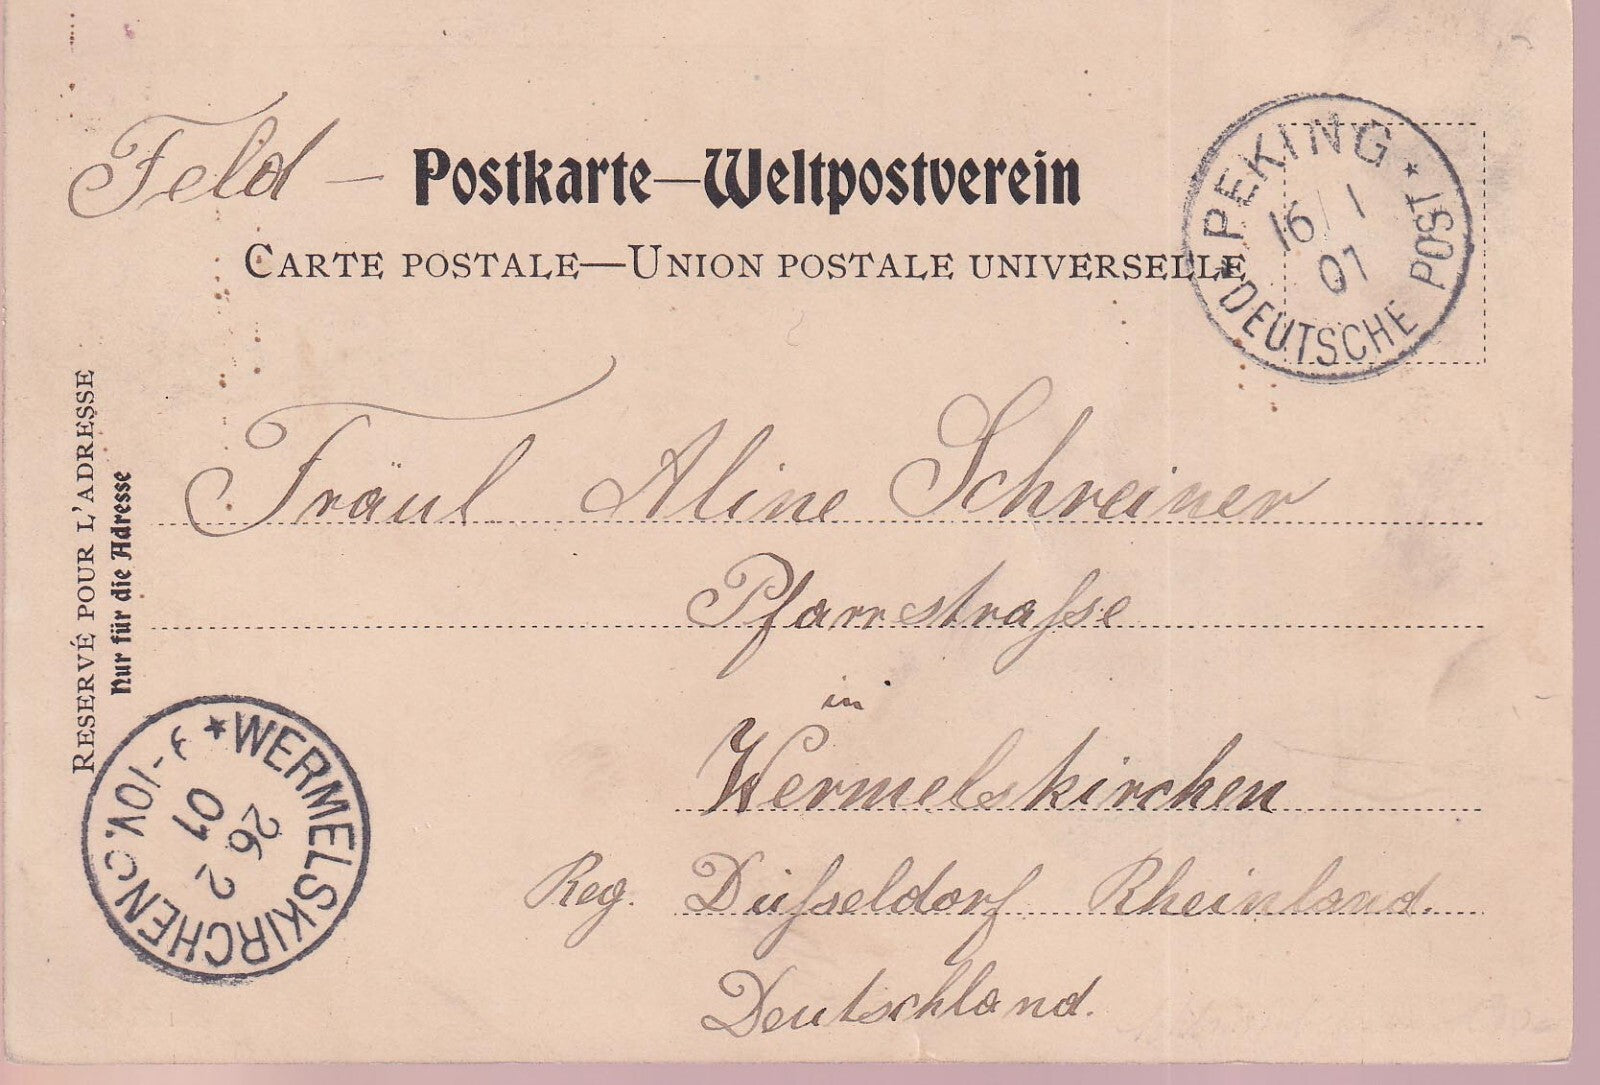 Feld – Postkarte—Weltpostverein
CARTE POSTALE—UNION POSTALE UNIVERSELLE
PEKING
16/1
01
* DEUTSCHE POST *
RESERVÉ POUR L'ADRESSE
Nur für die Adresse
Fräul Aline Schreiner
Pfarrstrasse
in
Wermelskirchen
Reg. Düsseldorf Rheinland.
Deutschland.
* WERMELSKIRCHEN
26 2
01
-10V.